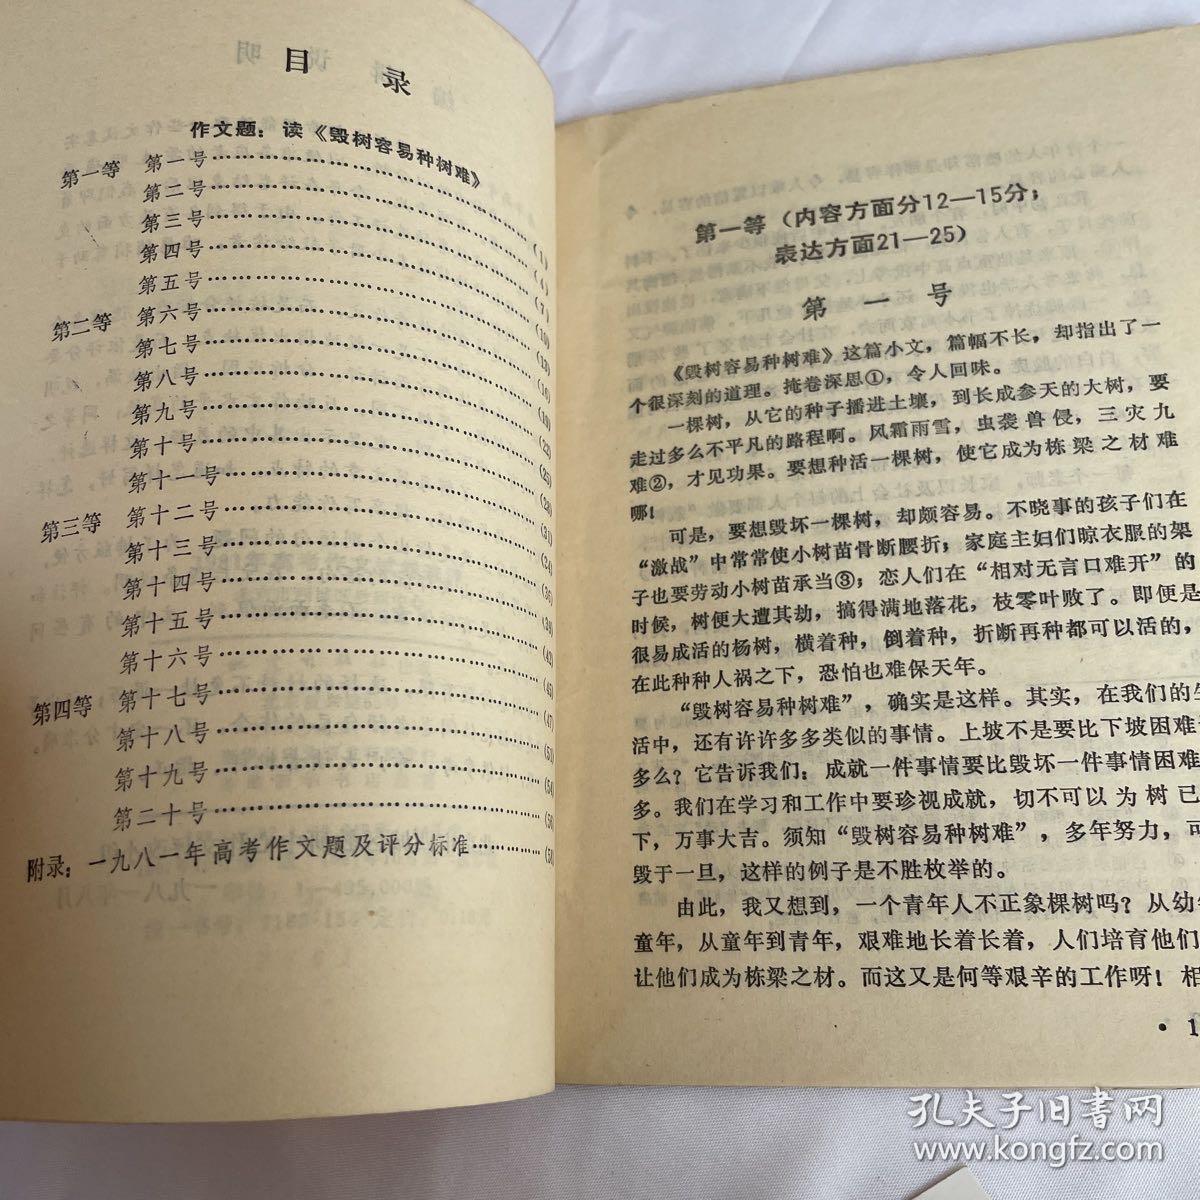 目录
作文题：读《毁树容易种树难》
第一等 第一号……………………………(1)
第二号……………………………(4)
第三号……………………………(7)
第四号……………………………(10)
第五号……………………………(13)
第二等 第六号……………………………(16)
第七号……………………………(19)
第八号……………………………(22)
第九号……………………………(25)
第十号……………………………(28)
第十一号……………………………(31)
第三等 第十二号……………………………(34)
第十三号……………………………(36)
第十四号……………………………(39)
第十五号……………………………(43)
第十六号……………………………(45)
第四等 第十七号……………………………(47)
第十八号……………………………(51)
第十九号……………………………(54)
第二十号……………………………(56)
附录：一九八一年高考作文题及评分标准…………
第一等（内容方面分12—15分；
表达方面21—25）
第一号
《毁树容易种树难》这篇小文，篇幅不长，却指出了一
个很深刻的道理。掩卷深思①，令人回味。
一棵树，从它的种子播进土壤，到长成参天的大树，要
走过多么不平凡的路程啊。风霜雨雪，虫袭兽侵，三灾九
难②，才见功果。要想种活一棵树，使它成为栋梁之材难
哪！
可是，要想毁坏一棵树，却颇容易。不晓事的孩子们在
“激战”中常常使小树苗骨断腰折；家庭主妇们晾衣服的架
子也要劳动小树苗承当③；恋人们在“相对无言口难开”的
时候，树便大遭其劫，搞得满地落花，枝零叶败了。即便是
很易成活的杨树，横着种，倒着种，折断再种都可以活的，
在此种种人祸之下，恐怕也难保天年。
“毁树容易种树难”，确实是这样。其实，在我们的生
活中，还有许许多多类似的事情。上坡不是要比下坡困难
多么？它告诉我们：成就一件事情要比毁坏一件事情困难
多。我们在学习和工作中要珍视成就，切不可以为树已
下，万事大吉。须知“毁树容易种树难”，多年努力，可
毁于一旦，这样的例子是不胜枚举的。
由此，我又想到，一个青年人不正象棵树吗？从幼
童年，从童年到青年，艰难地长着长着，人们培育他们
让他们成为栋梁之材。而这又是何等艰辛的工作呀！相
·1
孔夫子旧书网
www.kongfz.com